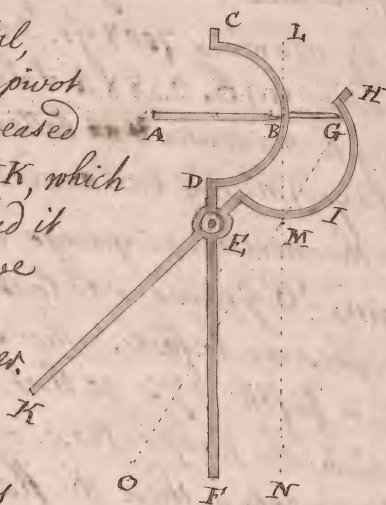 al,
pivot
eased
K, which
d it
ve
er.
s
C
L
H
A
B
G
D
I
E
M
K
O
F
N